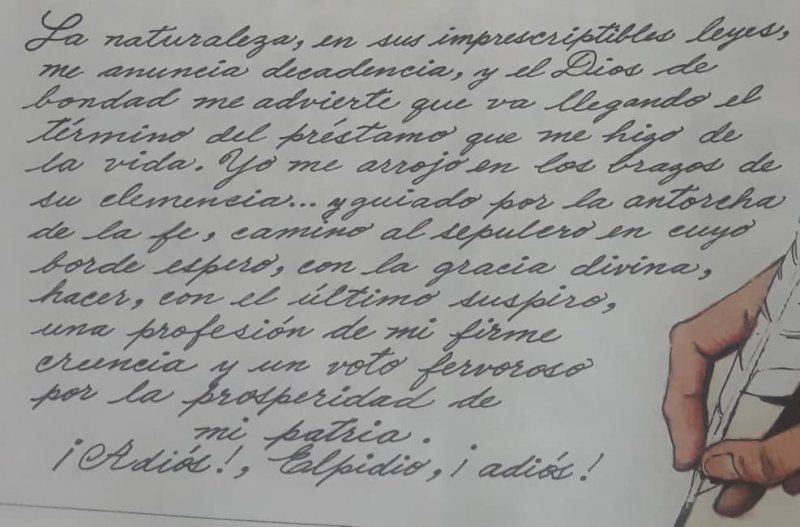 La naturaleza, en sus imprescriptibles leyes,
me anuncia decadencia, y el Dios de
bondad me advierte que va llegando el
término del préstamo que me hizo de
la vida. Yo me arrojo en los brazos de
su clemencia... y guiado por la antorcha
de la fe, camino al sepulcro en cuyo
borde espero, con la gracia divina,
hacer, con el último suspiro,
una profesión de mi firme
creencia y un voto fervoroso
por la prosperidad de
mi patria.
¡Adiós!, Elpidio, ¡adiós!